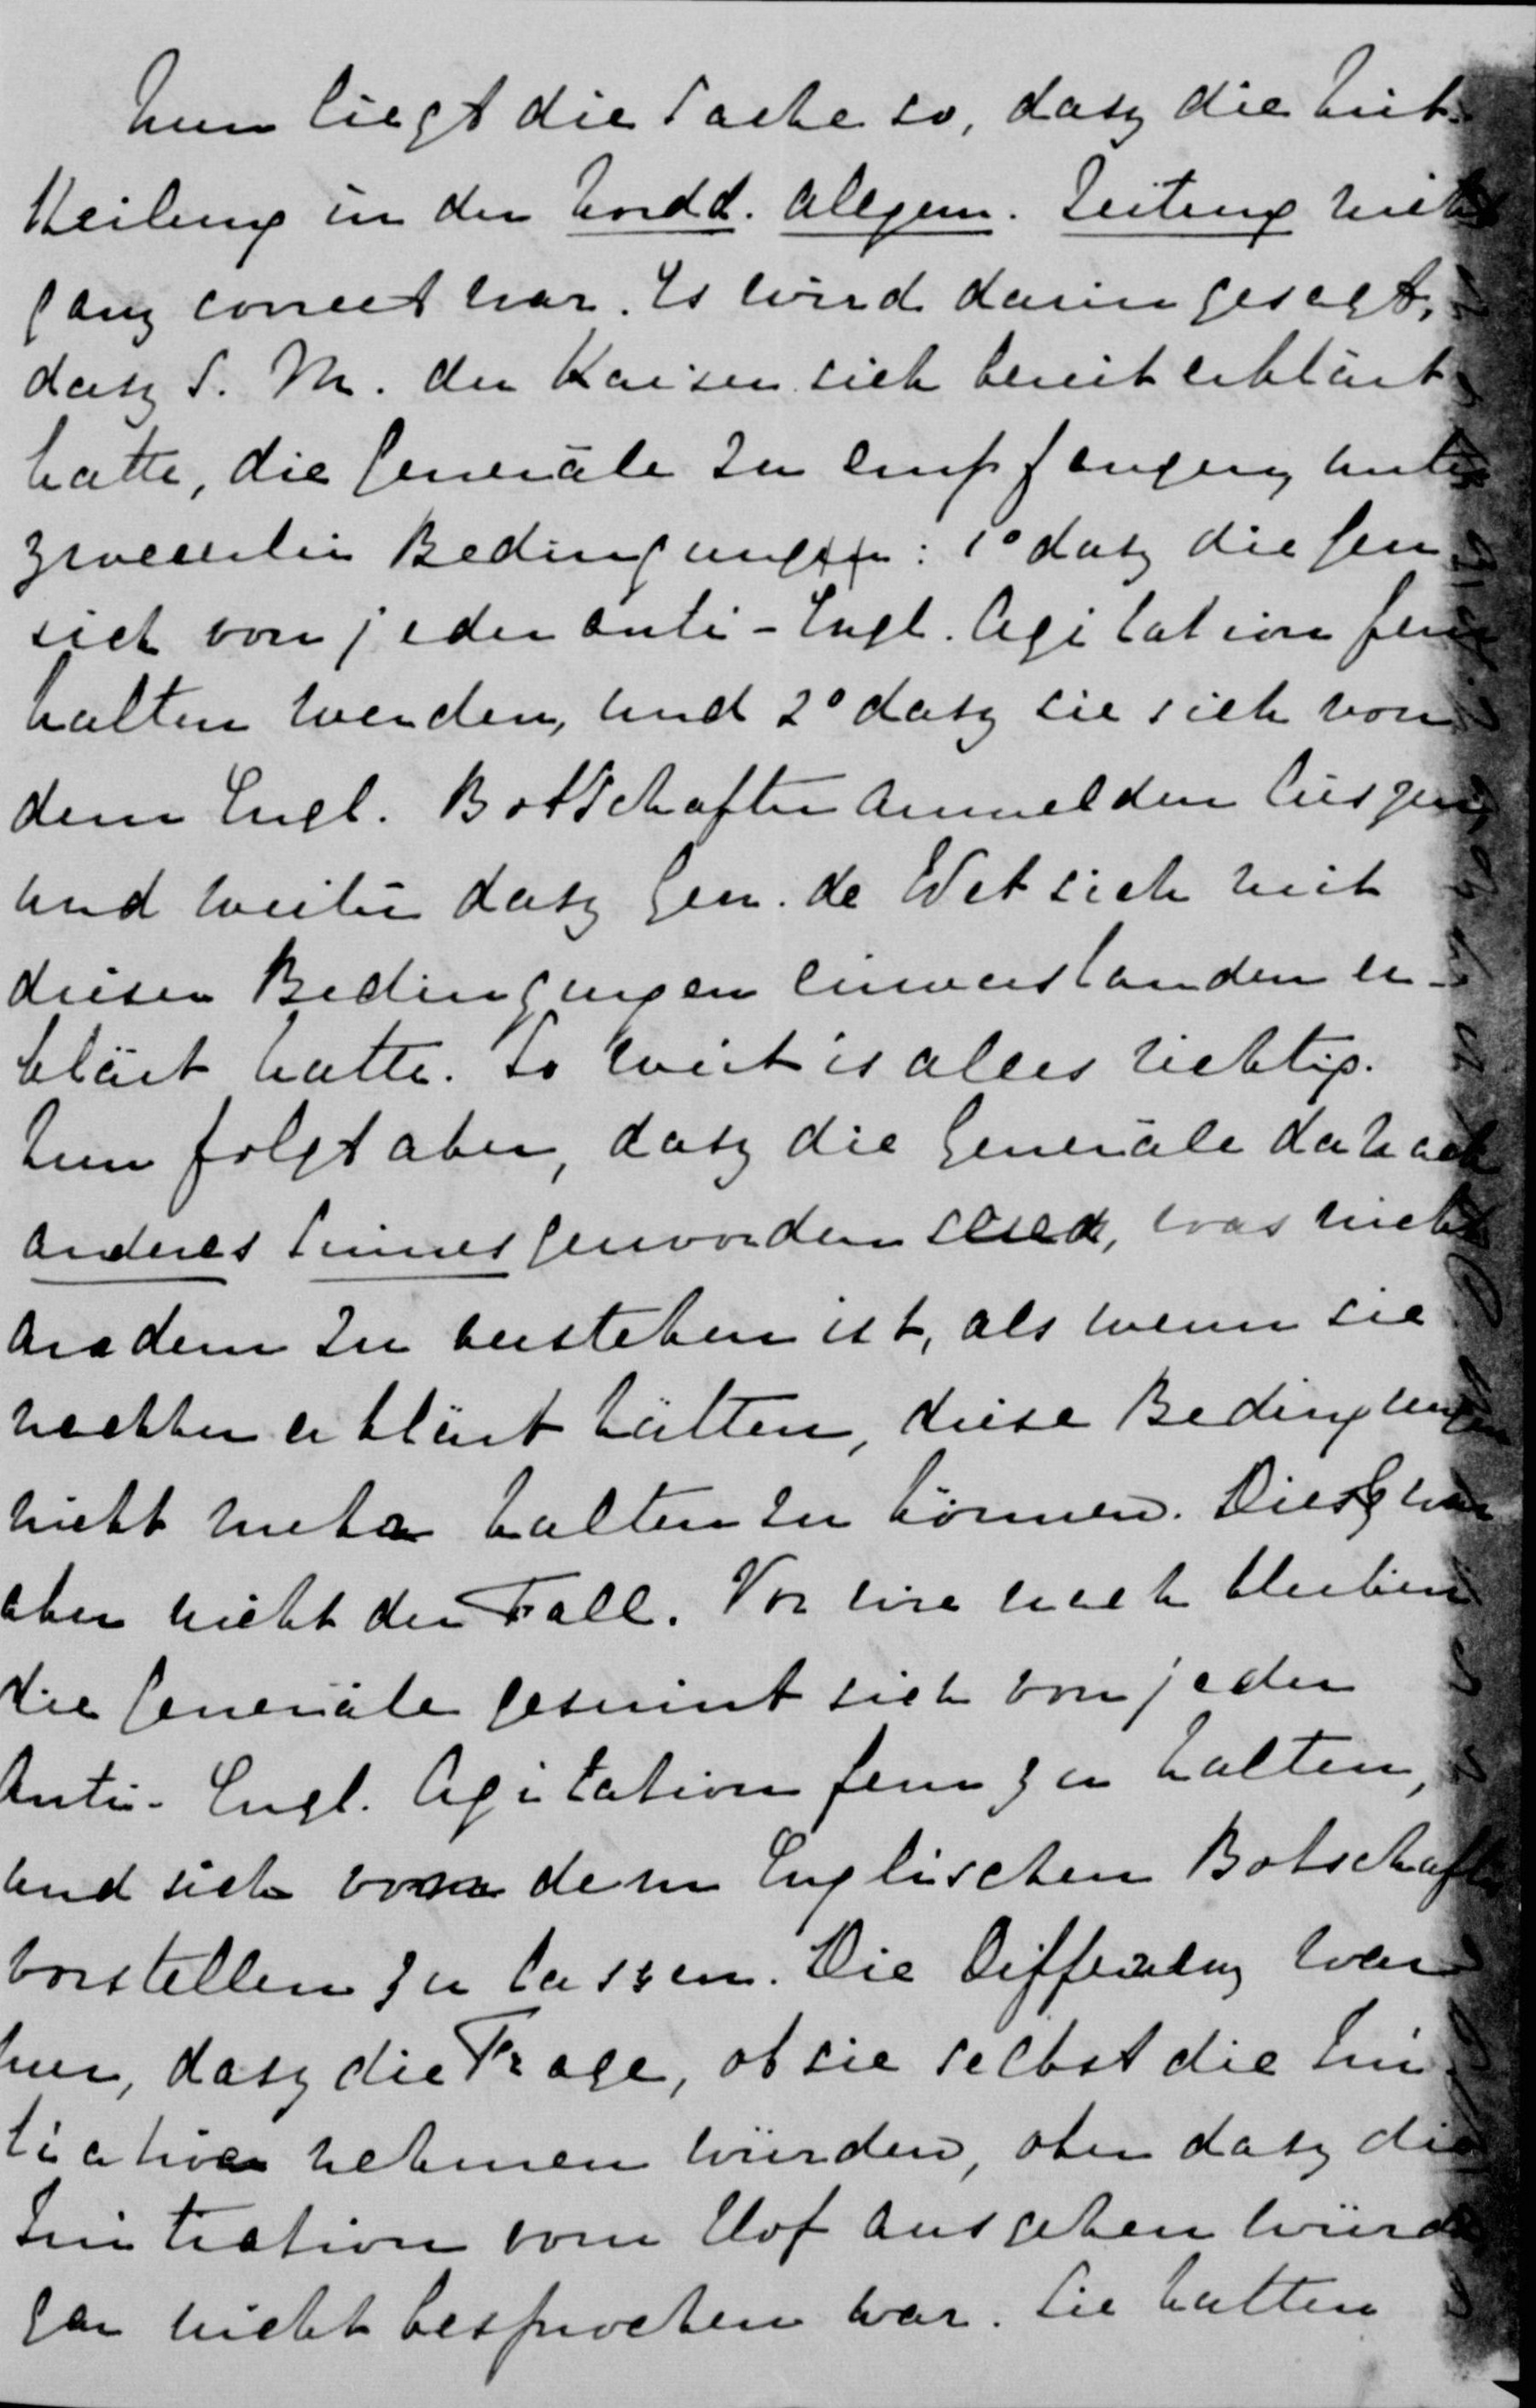 Nun liegt die Sache so, dasz die Mit-
theilung in der Nordd. Allgem. Zeitung nicht
ganz correct war. Es wird darin gesagt,
dasz S. M. der Kaiser sich bereit erklärt
hatte, die Generäle zu empfangen, unter
zweierlei Bedingungen: 1º dasz die Gen.
sich von jeder anti-Engl. Agitation fern
halten werden, und 2º dasz sie sich von
dem Engl. Botschafter anmelden lieszen,
und weiter dasz Gen. de Wet sich mit
diesen Bedingungen einverstanden er-
klärt hatte. So weit is alles richtig.
Nun folgt aber, dasz die Generäle danach
anderes Sinnes geworden sind, was nicht
anders zu verstehen ist, als wenn sie
nachher erklärt hätten, diese Bedingungen
nicht mehr halten zu können. Diesz war
aber nicht der Fall. Vor wie nach blieben
die Generäle gesinnt sich von jeder
Anti-Engl. Agitation fern zu halten,
und sich von dem Englischen Botschafter
vorstellen zu lassen. Die Differenz war
nur, dasz die Frage, ob sie selbst die Ini-
tiative nehmen würden, oder dasz die
Initiative vom Hof ausgehen würde
gar nicht besprochen war. Sie hatten